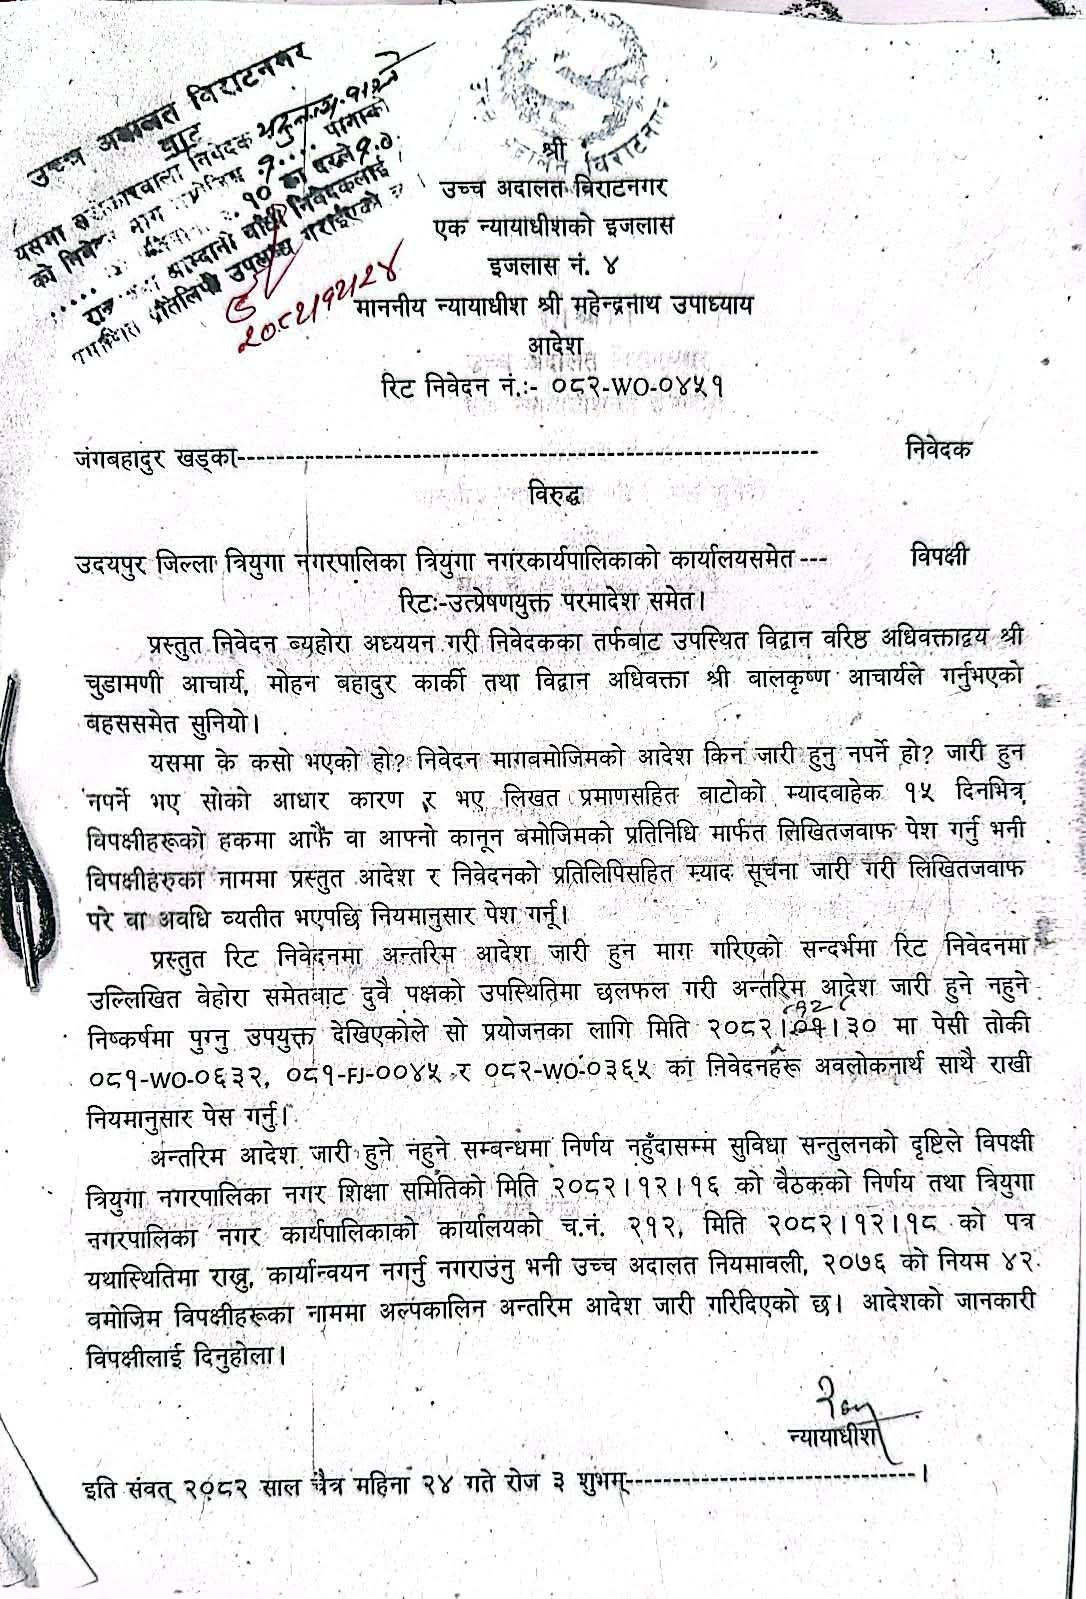 उच्च अदालत विराटनगर
बाट
श्री
उच्च अदालत बिराटनगर
एक न्यायाधीशको इजलास
इजलास नं. ४
माननीय न्यायाधीश श्री महेन्द्रनाथ उपाध्याय
आदेश
रिट निवेदन नं.:- ०८२-WO-०४५१
२०८२।१२।२४
जंगबहादुर खड्का------------------------------------------------------------ निवेदक
विरुद्ध
उदयपुर जिल्ला त्रियुगा नगरपालिका त्रियुगा नगरकार्यपालिकाको कार्यालयसमेत --- विपक्षी
रिटः-उत्प्रेषणयुक्त परमादेश समेत।
प्रस्तुत निवेदन ब्यहोरा अध्ययन गरी निवेदकका तर्फबाट उपस्थित विद्वान वरिष्ठ अधिवक्ताद्वय श्री
चुडामणी आचार्य, मोहन बहादुर कार्की तथा विद्वान अधिवक्ता श्री बालकृष्ण आचार्यले गर्नुभएको
बहससमेत सुनियो।
यसमा के कसो भएको हो? निवेदन मागबमोजिमको आदेश किन जारी हुनु नपर्ने हो? जारी हुन
नपर्ने भए सोको आधार कारण र भए लिखत प्रमाणसहित बाटोको म्यादबाहेक १५ दिनभित्र
विपक्षीहरूको हकमा आफै वा आफ्नो कानून बमोजिमको प्रतिनिधि मार्फत लिखितजवाफ पेश गर्नु भनी
विपक्षीहरुका नाममा प्रस्तुत आदेश र निवेदनको प्रतिलिपिसहित म्याद सूचना जारी गरी लिखितजवाफ
परे वा अवधि व्यतीत भएपछि नियमानुसार पेश गर्नू।
प्रस्तुत रिट निवेदनमा अन्तरिम आदेश जारी हुन माग गरिएको सन्दर्भमा रिट निवेदनमा
उल्लिखित बेहोरा समेतबाट दुवै पक्षको उपस्थितिमा छलफल गरी अन्तरिम आदेश जारी हुने नहुने
निष्कर्षमा पुग्नु उपयुक्त देखिएकोले सो प्रयोजनका लागि मिति २०८२।१२।३० मा पेसी तोकी
०८१-WO-०६३२, ०८१-FJ-००४५ र ०८२-WO-०३६५ का निवेदनहरू अवलोकनार्थ साथै राखी
नियमानुसार पेस गर्नु।
अन्तरिम आदेश जारी हुने नहुने सम्बन्धमा निर्णय नहुँदासम्म सुविधा सन्तुलनको दृष्टिले विपक्षी
त्रियुगा नगरपालिका नगर शिक्षा समितिको मिति २०८२।१२।१६ को वैठकको निर्णय तथा त्रियुगा
नगरपालिका नगर कार्यपालिकाको कार्यालयको च.नं. २१२, मिति २०८२।१२।१८ को पत्र
यथास्थितिमा राख्नु, कार्यान्वयन नगर्नु नगराउनु भनी उच्च अदालत नियमावली, २०७६ को नियम ४२
वमोजिम विपक्षीहरूका नाममा अल्पकालिन अन्तरिम आदेश जारी गरिदिएको छ। आदेशको जानकारी
विपक्षीलाई दिनुहोला।
न्यायाधीश
इति संवत् २०८२ साल चैत्र महिना २४ गते रोज ३ शुभम्------------------------------।